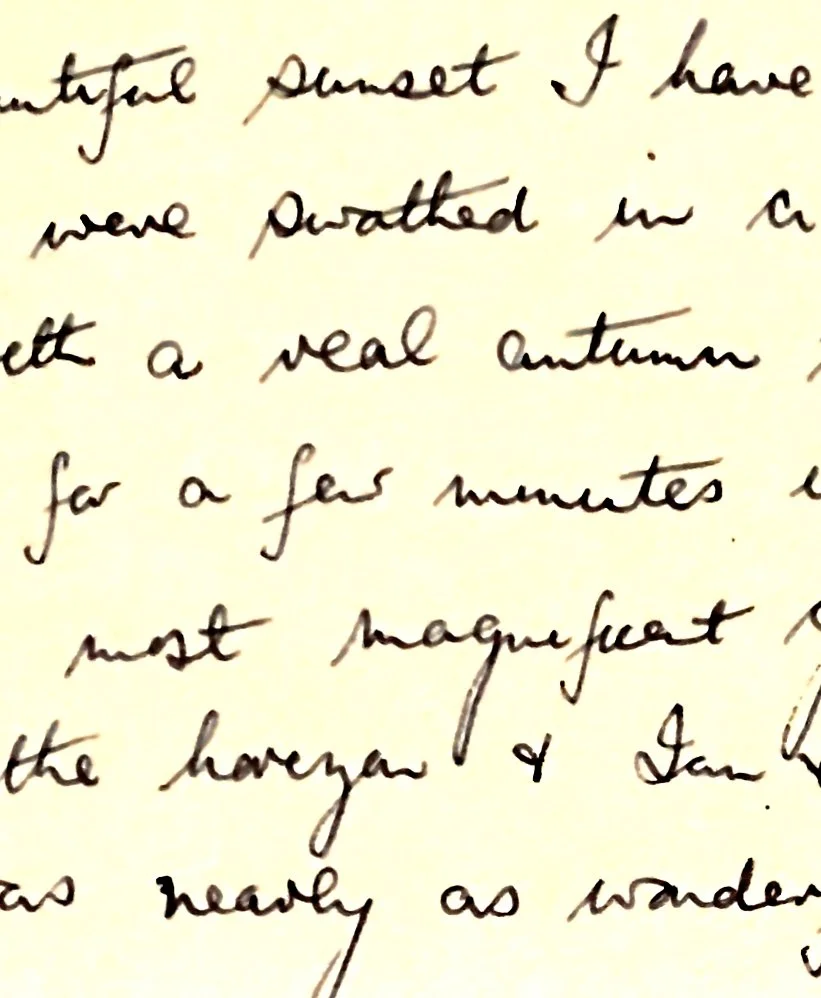 sunset I have
were swathed in
a real autumn
for a few minutes
most magnificent
the horizon & Ian
as nearly as